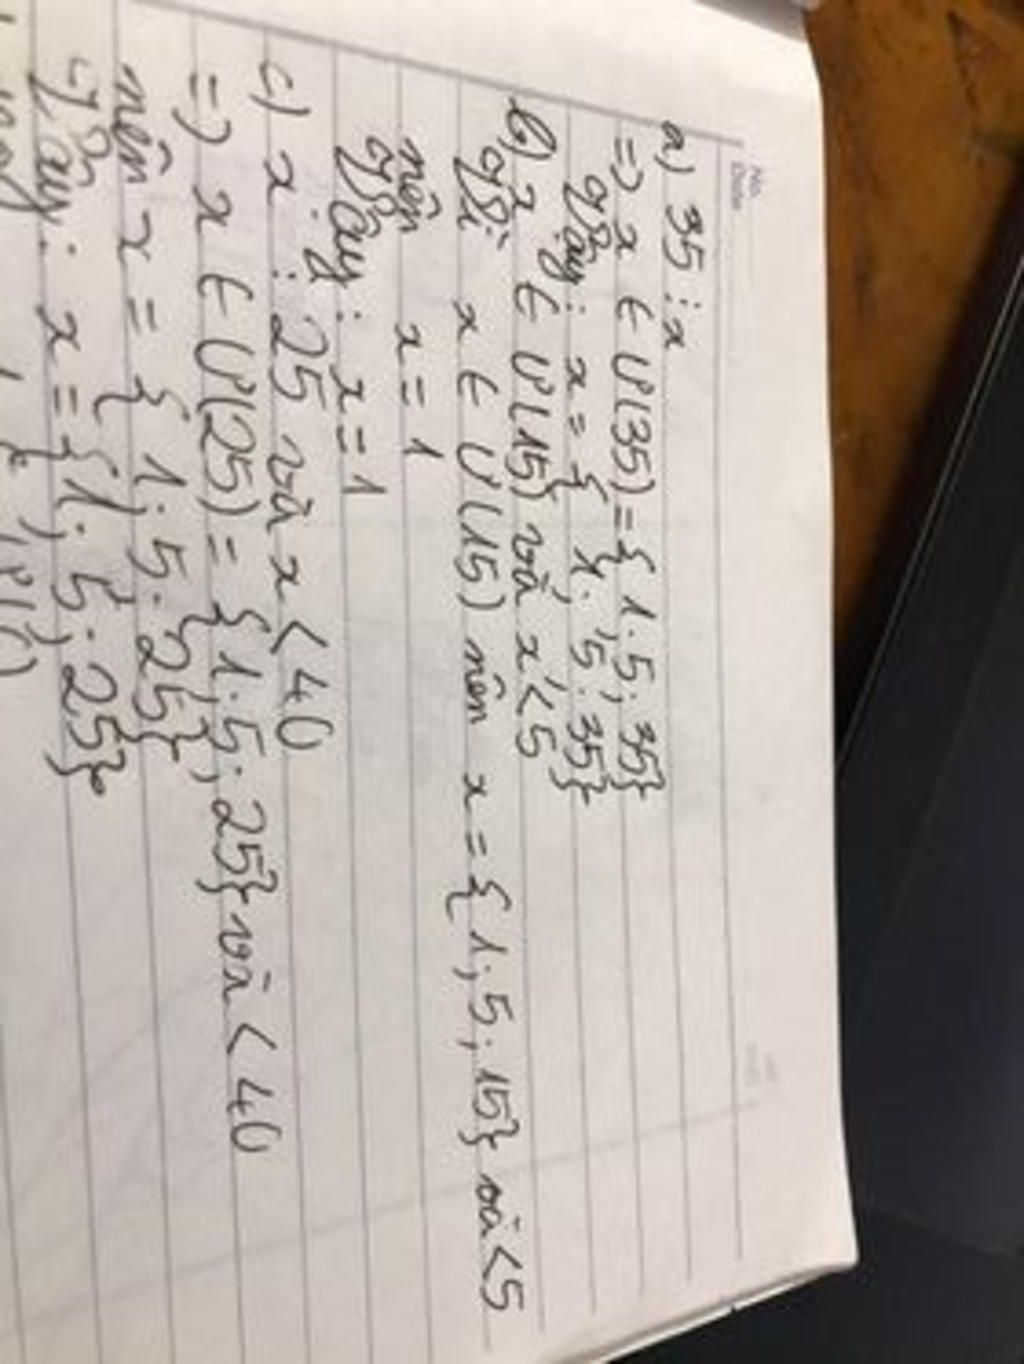 No.
Date
a) 35 ⋮ x
=> x ∈ Ư(35) = {1; 5; 35}
Vậy: x = {1; 5; 35}
b) x ∈ Ư(15) và x < 5
Vì x ∈ Ư(15) nên x = {1; 5; 15} và < 5
nên x = 1
Vậy: x = 1
c) x ⋮ 25 và x < 40
=> x ∈ Ư(25) = {1; 5; 25} và < 40
nên x = {1; 5; 25}
Vậy: x = {1; 5; 25}